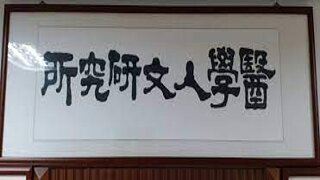 醫學人文研究所